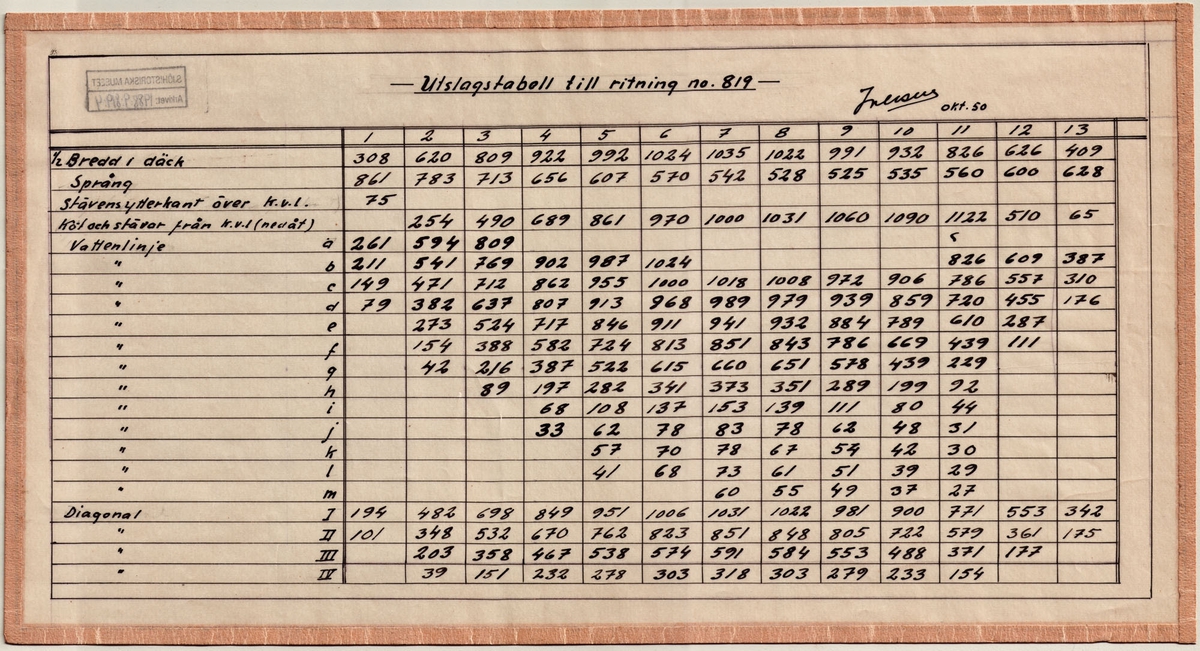 SJÖHISTORISKA MUSEET
Arkivet
— Utslagstabell till ritning no. 819 —
okt. 50
1 2 3 4 5 6 7 8 9 10 11 12 13
1/2 Bredd i däck 308 620 809 922 992 1024 1035 1022 991 932 826 626 409
Språng 861 783 713 656 607 570 542 528 525 535 560 600 628
Stävens ytterkant över K.v.l. 75
Köl och stävar från K.v.l (nedåt) 254 490 689 861 970 1000 1031 1060 1090 1122 510 65
Vattenlinje a 261 594 809
" b 211 541 769 902 987 1024 826 609 387
" c 149 471 712 862 955 1000 1018 1008 972 906 786 557 310
" d 79 382 637 807 913 968 989 979 939 859 720 455 176
" e 273 524 717 846 911 941 932 884 789 610 287
" f 154 388 582 724 813 851 843 786 669 439 111
" g 42 216 387 522 615 660 651 578 439 229
" h 89 197 282 341 373 351 289 199 92
" i 68 108 137 153 139 111 80 44
" j 33 62 78 83 78 62 48 31
" k 57 70 78 67 54 42 30
" l 41 68 73 61 51 39 29
" m 60 55 49 37 27
Diagonal I 194 482 698 849 951 1006 1031 1022 981 900 771 553 342
" II 101 348 532 670 762 823 851 848 805 722 579 361 175
" III 203 358 467 538 574 591 584 553 488 371 177
" IV 39 151 232 278 303 318 303 279 233 154